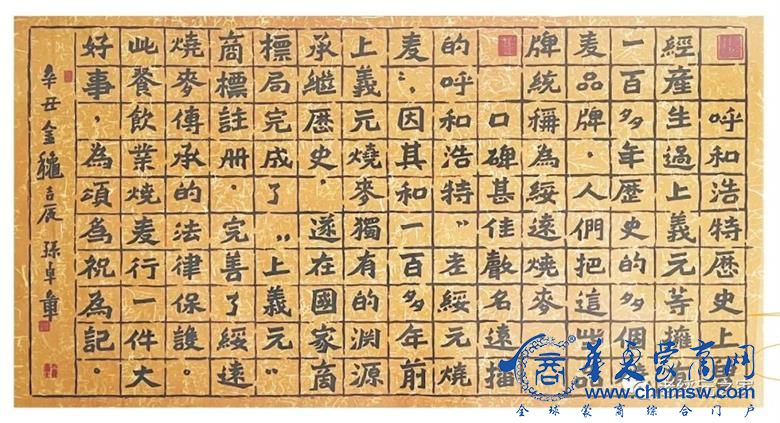 呼和浩特歷史上
經產生過上義元等擁有
一百多年歷史的多個
麦品牌，人們把這些品
牌統稱為綏遠燒麥
口碑甚佳聲名遠播
的呼和浩特“老綏元燒
麦”，因其和一百多年前
上義元燒麥獨有的淵源
承繼歷史。遂在國家商
標局完成了“上義元”
商標註册。完善了綏遠
燒麥傳承的法律保護。
此餐飲業燒麦行一件大
好事，為頌為祝為記。
辛丑金龝吉辰 孫卓章
華夏蒙商网
www.chnmsw.com
全球蒙商综合门户